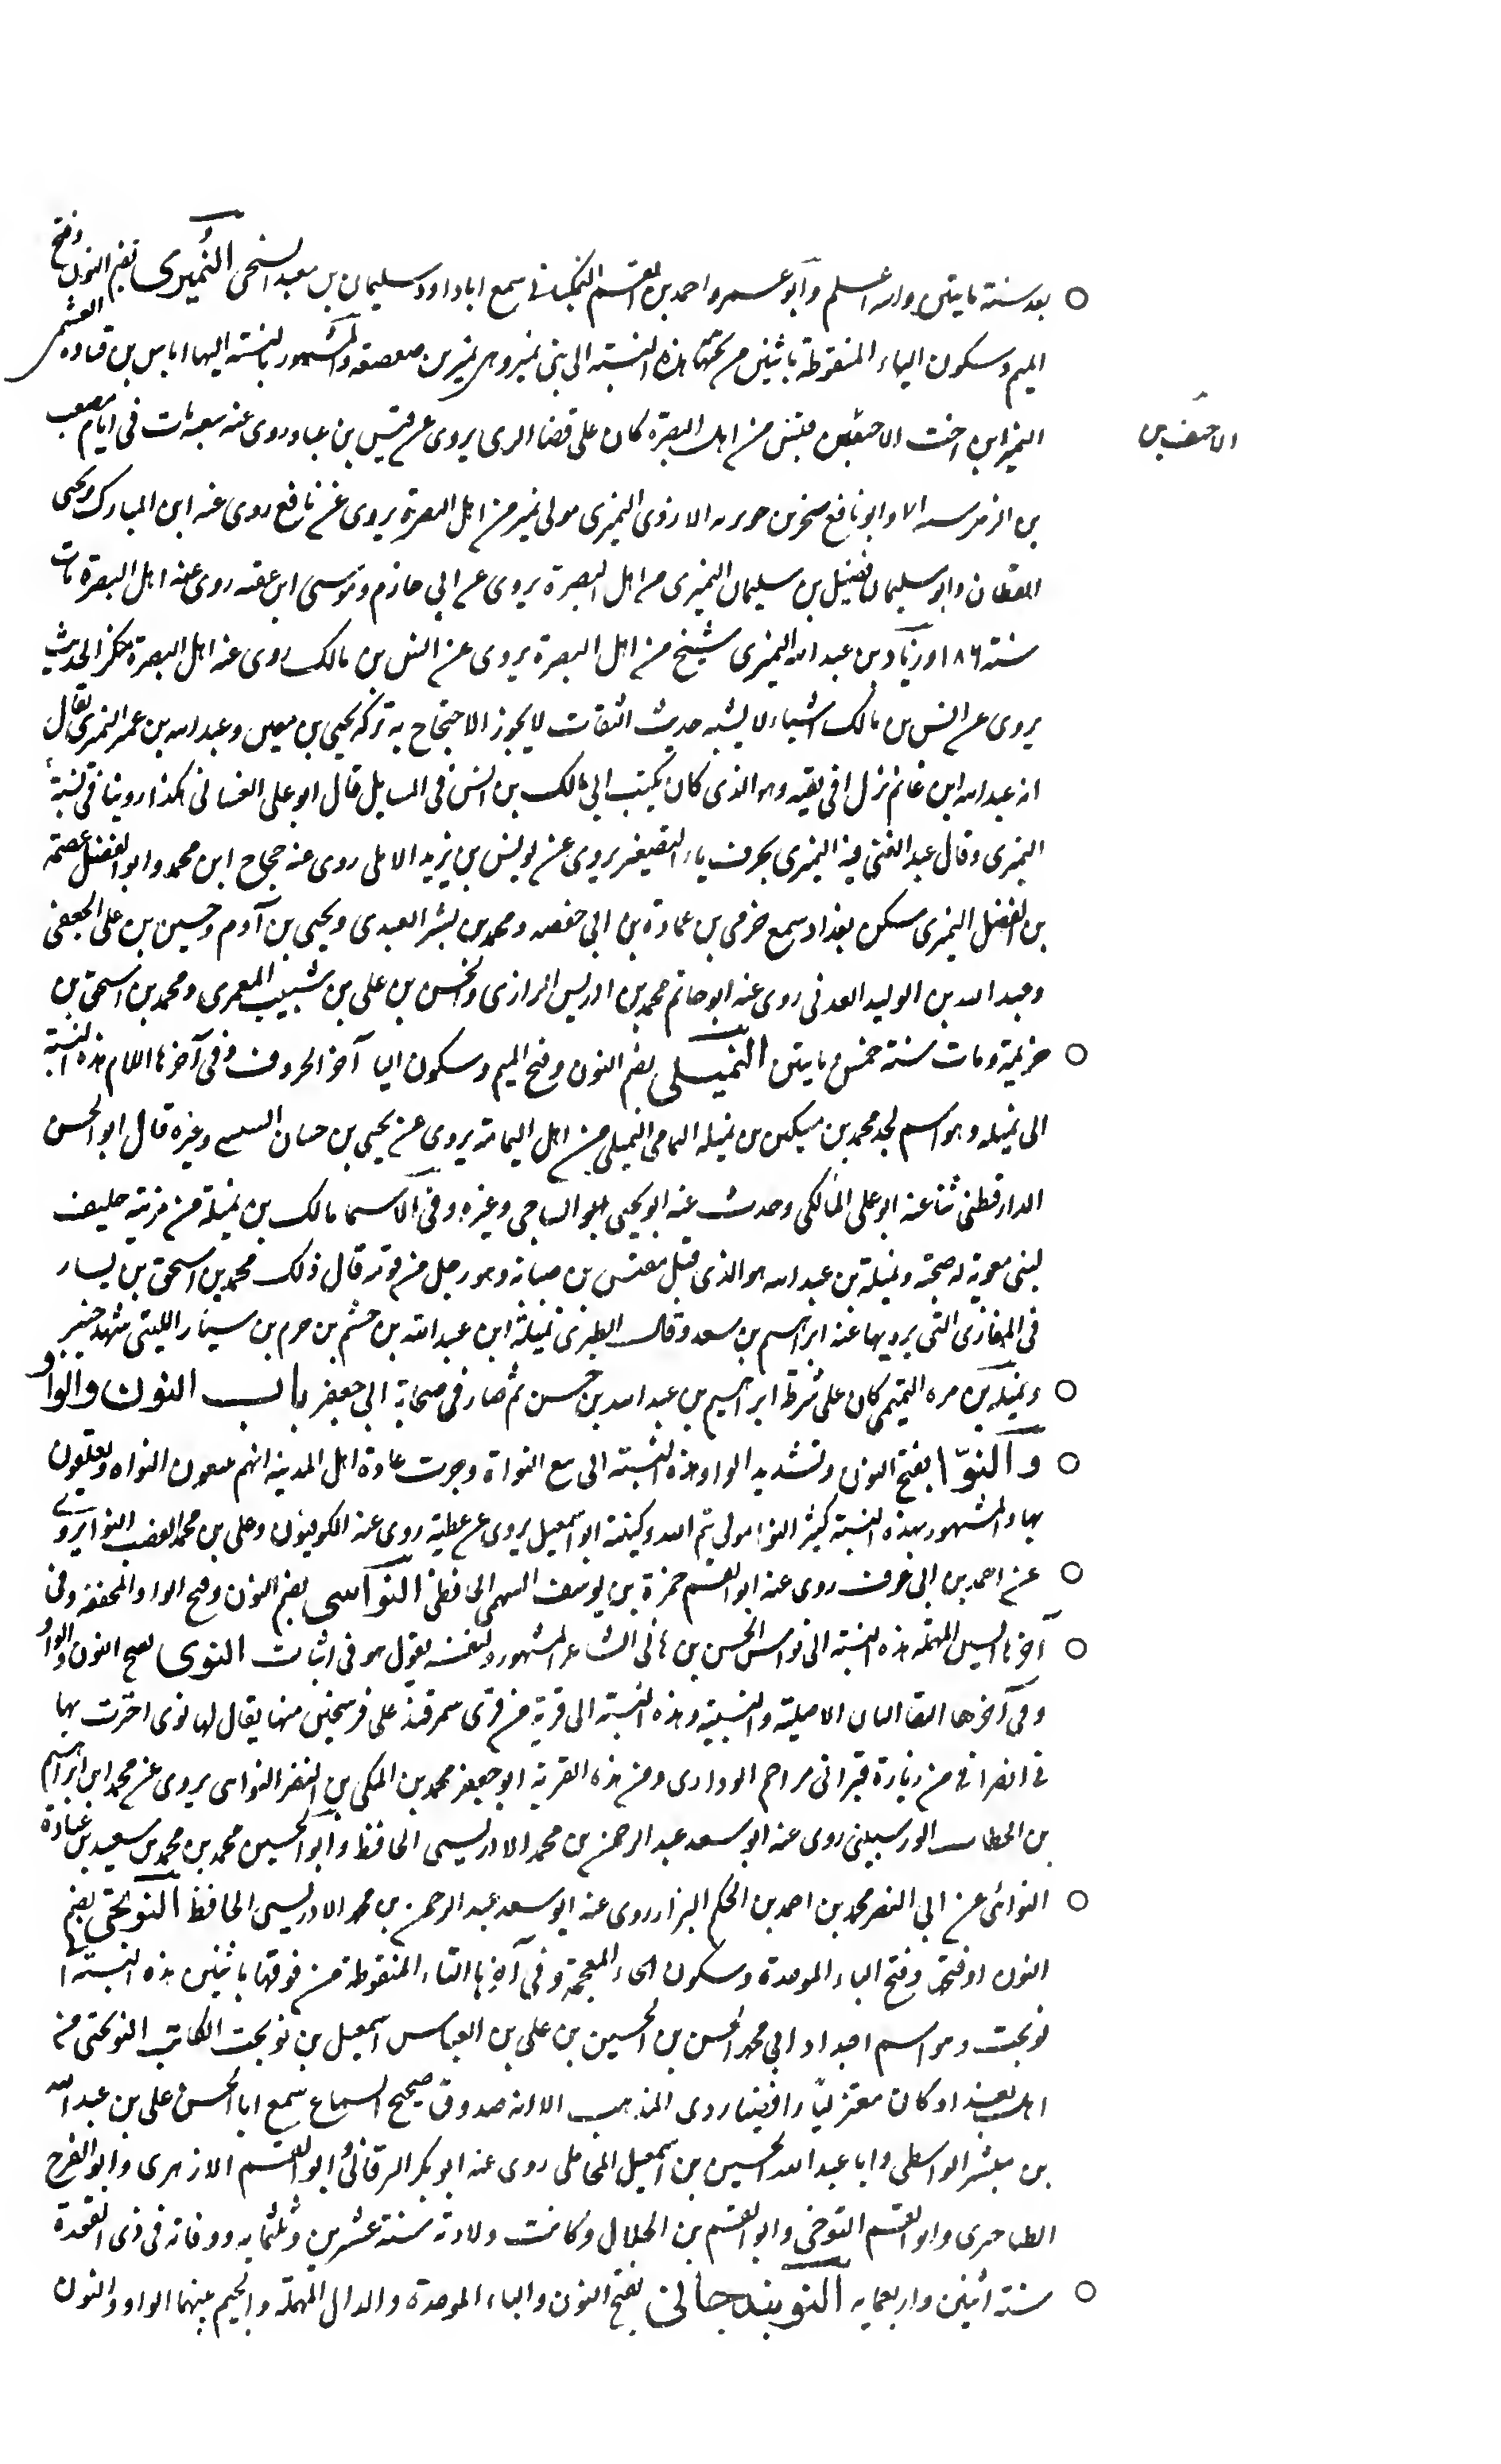 بعد سنة مايتين والله اعلم وابو عمرو احمد بن القسم النمكبانى سمع ابا داود سليمان بن معبد السنجى النُميرى بضم النون وفتح
الميم وسكون الياء المنقوطة باثنين من تحتها هذه النسبة الى بنى نمير وهو نمير بن صعصعة والمشهور بالنسبة اليها اياس بن قتاده العبشمى
النميرى ابن اخت الاحنف بن قيس من اهل البصرة كان على قضا الرى يروى عن قيس بن عباد روى عنه شعبة مات فى ايام مصعب
الاحنف بن
بن الزبير وابو نافع صخر بن جويريه الازدى النميرى مولى نمير من اهل البصرة يروى عن نافع روى عنه ابن المبارك ويحيى
القطان وابو سليمان فضيل بن سليمان النميرى من اهل البصرة يروى عن ابى حازم وموسى ابن عقبه روى عنه اهل البصرة مات
سنة ١٨٦ وزياد بن عبد الله النميرى شيخ من اهل البصرة يروى عن انس بن مالك روى عنه اهل البصرة منكر الحديث
يروى عن انس بن مالك اشياء لا يشبه حديث الثقات لا يجوز الاحتجاح به تركه يحيى بن معين وعبد الله بن عمر النميرى يقال
انه عبد الله ابن غانم نزل افريقيه وهو الذى كان يكتب الى مالك بن انس فى المسايل قال ابو على الغسانى هكذا روينا فى نسبه
النميرى وقال عبد الغنى فيه النميرى بحرف ياء التصغير يروى عن يونس بن يزيد الايلى روى عنه حجاج ابن محمد وابو الفضل عصمة
بن الفضل النميرى سكن بغداد سمع حرمى بن عمارة بن ابى حفصه ومحمد بن بشر العبدى ويحيى بن آدم وحسين بن على الجعفى
وعبد الله بن الوليد العدنى روى عنه ابو حاتم محمد بن ادريس الرازى والحسن بن على بن شبيب المعمرى ومحمد بن اسحق بن
خزيمة ومات سنة خمسين ومايتين النُميلى بضم النون وفتح الميم وسكون اليا آخر الحروف وفى آخرها اللام هذه النسبة
الى نميله وهو اسم لجد محمد بن مسكين بن نميله اليمامى النميلى من اهل اليمامة يروى عن يحيى بن حسان التنيسى وغيره قال ابو الحسن
الدارقطنى ثنا عنه ابو على المالكى وحدث عنه ابو يحيى الساجى وغيره وفى الاسما مالك بن نميلة من مزينة حليف
لبنى معوية له صحبة ونميلة بن عبد الله هو الذى قتل مقيس بن صبابه وهو رجل من قومه قال ذلك محمد بن اسحق بن يسار
فى المغازى التى يرويها عنه ابراهيم بن سعد وقال الطبرى نميلة ابن عبد الله بن حشم بن حرم بن سيار الليثى شهد خيبر
ونميله بن مره التميمى كان على شرط ابراهيم بن عبد الله بن حسن ثم صار فى صحابة ابى جعفر باب النون والواو
والنوّا بفتح النون وتشديد الواو هذه النسبة الى بيع النواة وجرت عادة اهل المدينه انهم يبيعون النواه ويعلفون
بها والمشهور بهذه النسبة كثير النوا مولى تيم الله وكنيته ابو اسمعيل يروى عن عطية روى عنه الكوفيون وعلى بن محمد القصب النوا يروى
عن احمد بن ابى عوف روى عنه ابو القسم حمزة بن يوسف السهمى الحافظ النُواسى بضم النون وفتح الواو المخففه وفى
آخرها السين المهمله هذه النسبة الى نواس الحسن بن هانى الشاعر المشهور ولنفسه يقول هو فى اثبات النوى بفتح النون والواو
وفى آخرها الفا البان الاصلية والنسبية وهذه النسبة الى قرية من قرى سمرقند على فرسخين منها يقال لها نوى اجتزت بها
فى انصرافى من زيارة قبرانى مزاحم الوذارى ومن هذه القرية ابو جعفر محمد بن المكى بن النضر النواى يروى عن محمد ابن ابراهيم
بن الخطاب الورسنينى روى عنه ابو سعد عبد الرحمن بن محمد الادريسى الحافظ وابو الحسين محمد بن محمد بن سعيد بن عبادة
النوائى عن ابى النضر محمد بن احمد بن الحكم البزار روى عنه ابو سعد عبد الرحمن بن محمد الادريسى الحافظ النوبختى بضم
النون او فتحها وفتح الباء الموحدة وسكون الخاء المعجمة وفى آخرها التاء المنقوطة من فوقها باثنين هذه النسبة الى
نوبخت وهو اسم اجداد ابى محمد الحسن بن الحسين بن على بن العباس اسمعيل بن نوبخت الكاتب النوبختى من
اهل بغداد كان معتزليًا رافضيا ردى المذهب الا انه صدوق صحيح السماع سمع ابا الحسن على بن عبد الله
بن مبشر الواسطى وابا عبد الله الحسين بن اسمعيل المحاملى روى عنه ابو بكر البرقانى وابو القسم الازهرى وابو الفرج
الطناجيرى وابو القسم التنوخى وابو القسم بن الخلال وكانت ولادته سنة عشرين وثلثمايه ووفاته فى ذى القعدة
سنة اثنين واربعمايه النوبندجانى بفتح النون والباء الموحدة والدال المهملة والجيم بينهما الواو والنون